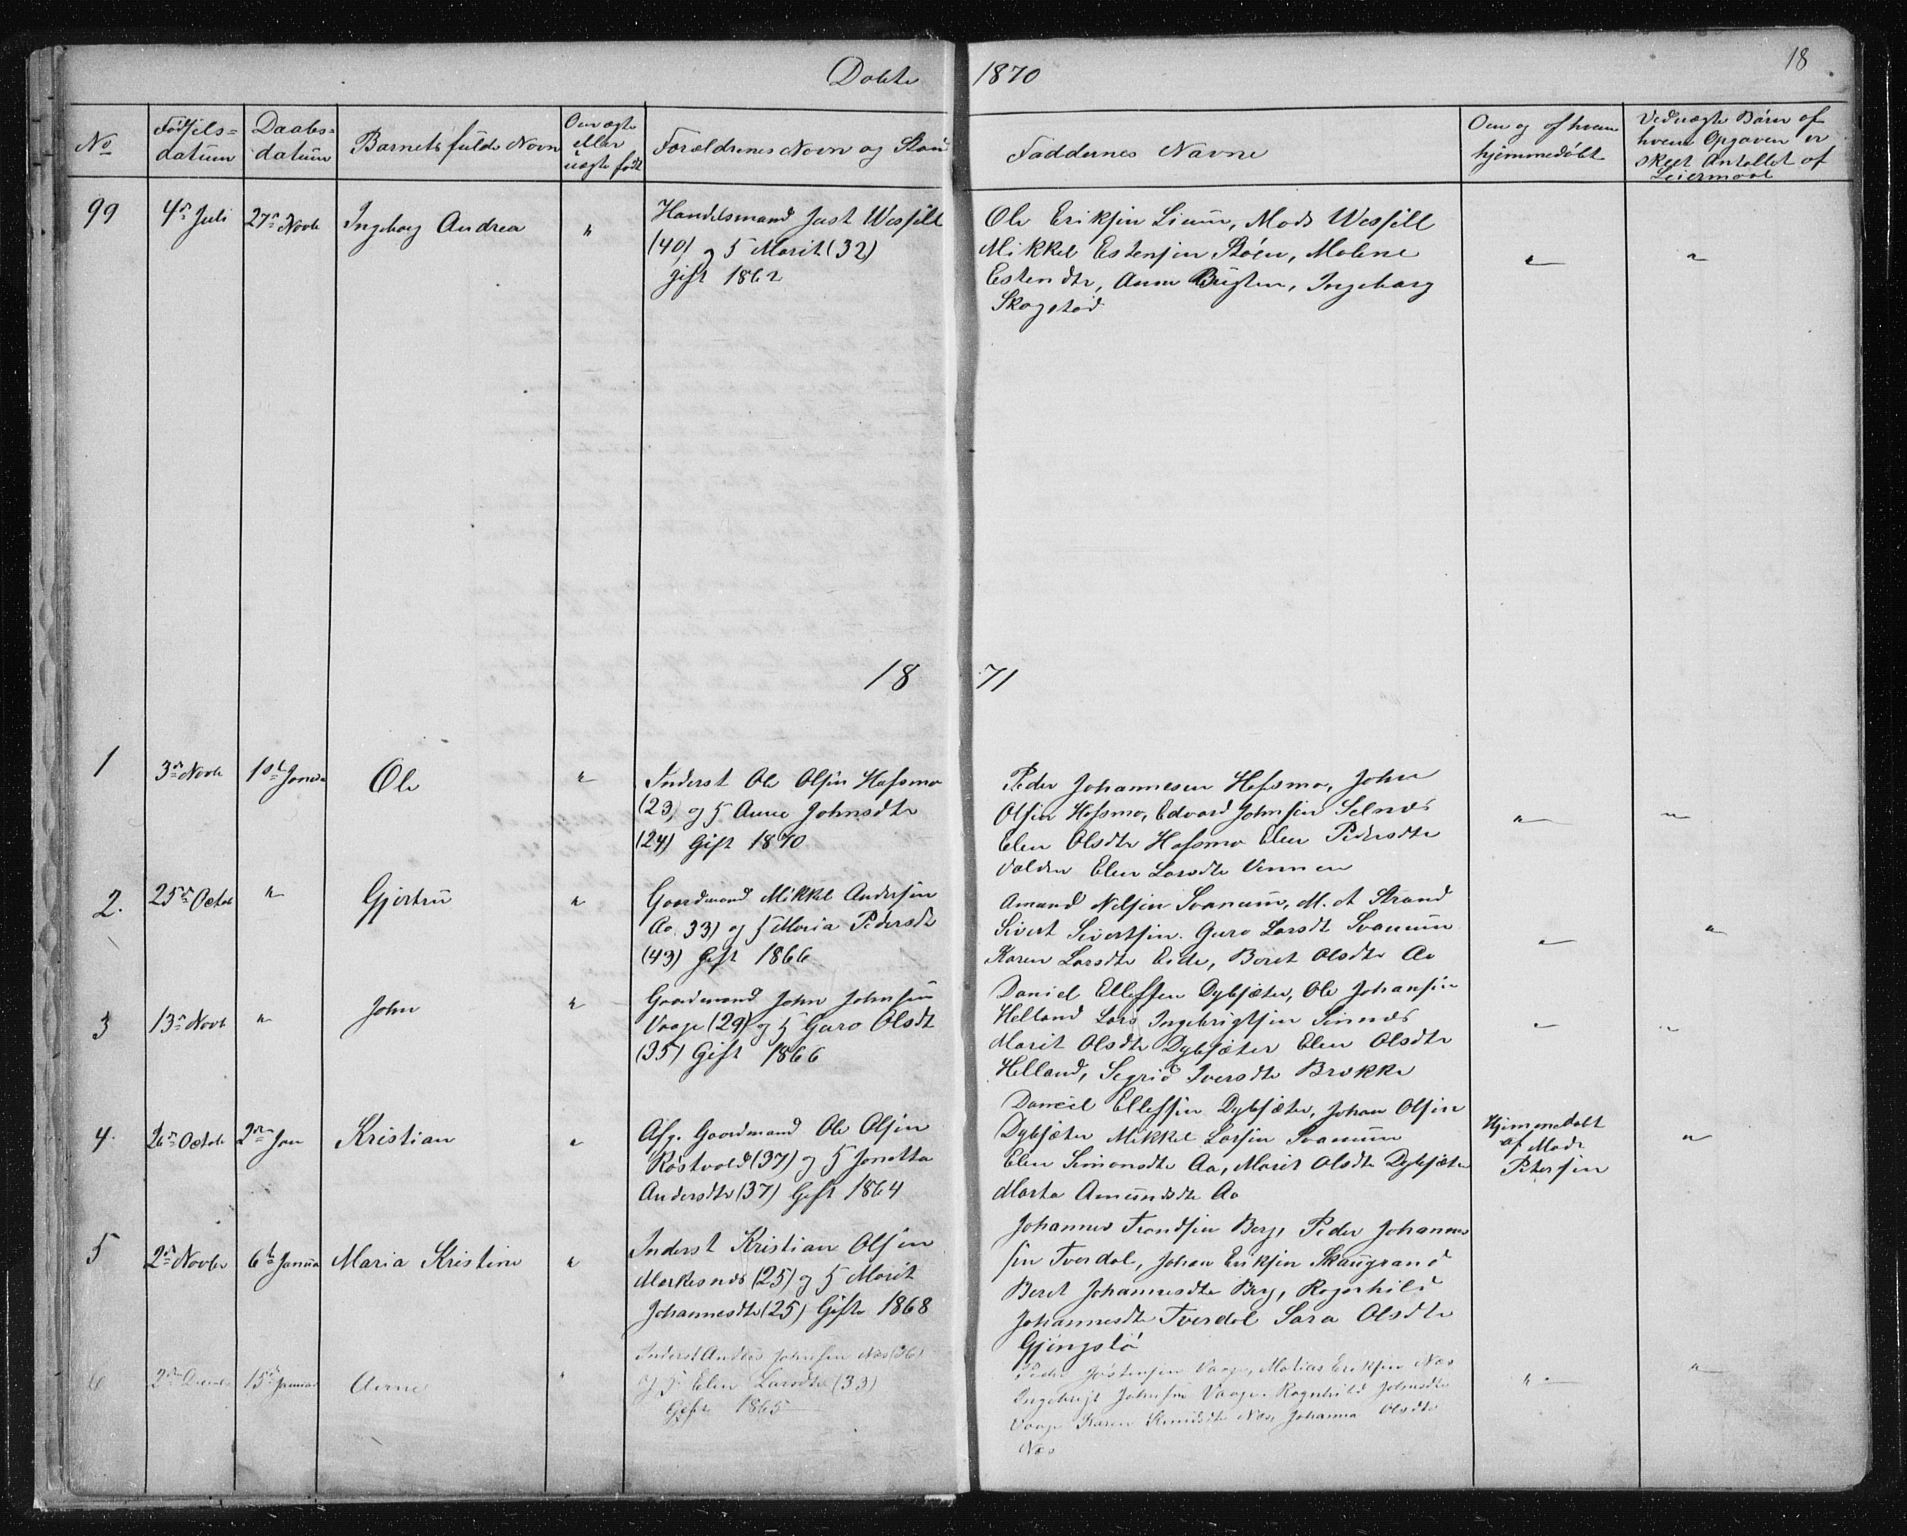 Døbte 1870
18
No
Fødsels=
datum
Daabs=
datum
Barnets fulde Navn
Om ægte
eller
uægte født
Forældrenes Navn og Stan
Faddernes Navne
Om og af hvem
hjemmedøbt
Ved uægte Børn af
hvem Opgaven er
skeet Antallet af
Leiermaal
99
4de Juli
27de Novb
Ingeborg Andrea
"
Handelsmand Jast Wesfell
(40) og H Marit (32)
gift 1862
Ole Eriksen Lium, Mads Wesfell
Mikkel Estensen Støen, Malene
Estendtr, Anne Brigten, Ingeborg
Skogstad
"
"
1871
1
3de Novb
1ste Janua
Ole
"
Inderst Ole Olsen Hafsmo
(23) og H Anne Johnsdtr
(24) Gift 1870
Peder Johannesen Hafsmo, John
Olsen Hafsmo, Edvard Johnsen Selnæs
Elen Olsdtr Hafsmo Elen Pedersdtr
Valden Elen Larsdtr Vinnen
"
"
2.
25de Octob
"
Gjertru
"
Gaardmand Mikkel Andersen
Aa 33) og H Maria Pedersdtr
(43) Gift 1866
Amund Nelsen Svanum, M. A Strand
Sivert Sivertsen. Guro Larsdt Svanum
Karen Larsdtr Eide, Beret Olsdtr Aa
"
"
3
13de Novb
"
John
"
Gaardmand John Johnsen
Vaage (29) og H Guro Olsdt
(35) Gift 1866
Daniel Ellefsen Dybsæter, Ole Johansen
Helland Lars Ingebrigtsen Sinnæs
Marit Olsdtr Dybsæter Elen Olsdtr
Helland, Segrid Iversdtr Brække
"
"
4.
26de Octob
2den Jan
Kristian
"
Afg. Gaardmand Ole Olsen
Røstvold (37) og H Jonetta
Andersdtr (37) Gift 1864
Daniel Ellefsen Dybsæter, Johan Olsen
Dybsæter Mikkel Larsen Svanum
Elen Simonsdtr Aa, Marit Olsdtr Dybsæter
Marta Amundsdtr Aa
Hjemmedøbt
af Mads
Petersen
"
5
2den Novbr
6te Janua
Maria Kristine
"
Inderst Kristian Olsen
Merkesnæs (25) og H Marit
Johannesdtr (25) Gifte 1868
Johannes Trondsen Berg, Peder Johannes
sen Tverdal, Johan Eriksen Skaugrand
Beret Johannesdtr Berg, Ragnhild
Johannesdtr Tverdal Sara Olsdtr
Gjengstø
6
2den Decemb
15de Januar
Arne
"
Inderst Anders Johnsen Næs (36)
og H Elen Larsdtr (33)
Gift 1865
Peder Jøstensen Vaage, Matias Eriksen Næs
Ingebrigt Johnsen Vaage. Ragnhild Johnsdtr
Vaage Karen Knudsdtr Næs, Johanna Olsdtr
Næs
"
"